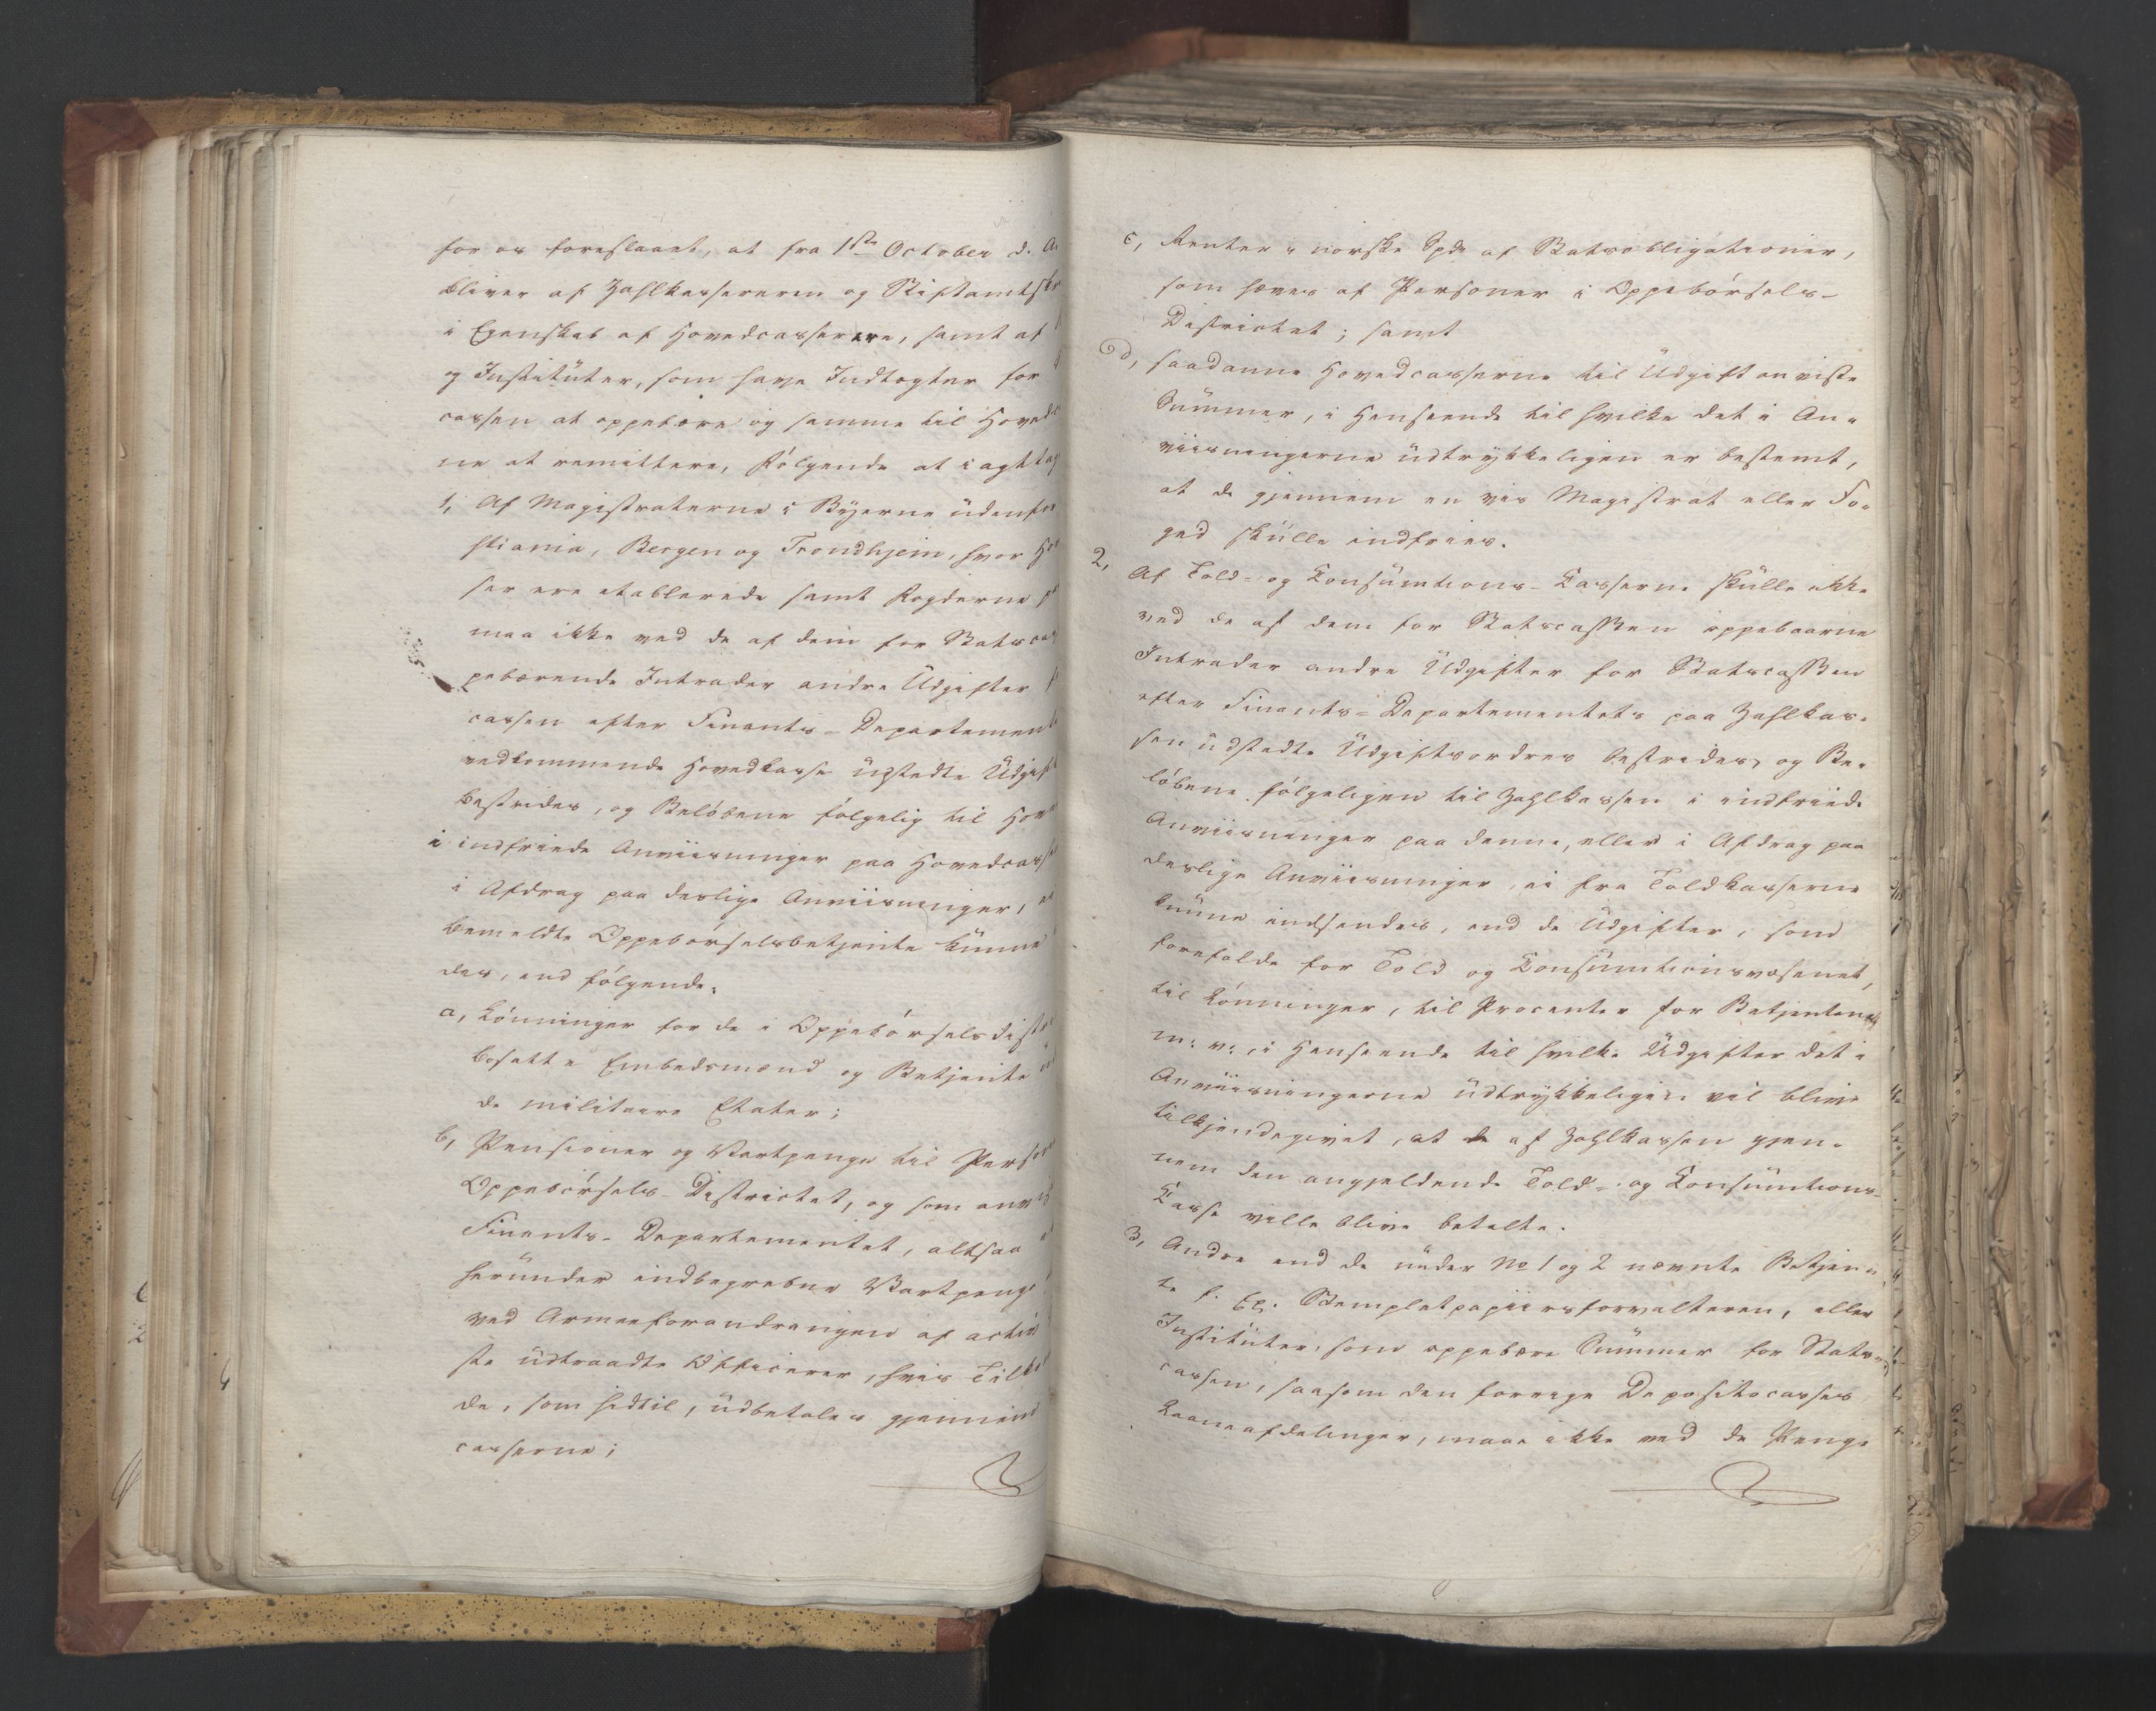 for os foreslaaet, at fra 1ste October d. A.
bliver af Zahlkassereren og Stiftamtskr
i Egenskab af Hovedcasserere, samt af
og Institüter, som have Indtægter for
cassen at oppebære og samme til Hovedc
ne at remittere, følgende at iagttag
1, Af Magistraterne i Byerne üdenfor
stiania, Bergen og Trondhjem, hvor Ho
ser ere etablerede samt Fogderne p
maa ikke ved de af dem for Statscas
pebærende Intrader andre Üdgifter f
cassen efter Finants-Departement
vedkommende Hovedkasse üdstedte Üdgif
bestrides, og Beløbene følgelig til Hov
i indfriede Anviisninger paa Hovedcas
i Afdrag paa deslige Anviisninger,
bemeldte Oppebørselsbetjente künne
des, end følgende.
a, Lønninger for de i Oppebørselsdist
bosatte Embedsmænd og Betjente
de militaire Etater;
b, Pensioner og Vartpenge til Person
Oppebørsels-Districtet, og som anvi
Finants-Departementet, altsaa
heründer indbegrebne Vartpenge
ved Armeeforandringen af activ
ste üdtraadte Officerer, hvis Tilk
de, som hidtil, üdbetales gjennem
casserne;
c, Renter i norske Spd. af Statsobligationer,
som hæves af Personer i Oppebørsels-
Districtet; samt
d, saadanne Hovedcasserne til Üdgift anviste
Sümmer, i Henseende til hvilke det i An-
viisningerne üdtrykkeligen er bestemt,
at de gjennem en vis Magistrat eller Fo-
ged skülle indfries.
2,
Af Told- og Consümtions-Casserne skülle ikke
ved de af dem for Statscassen oppebaarne
Intrader andre Üdgifter for Statscassen
efter Finants-Departementets paa Zahlkas-
sen üdstedte Üdgiftsordres bestrides, og Be-
løbene følgeligen til Zahlkassen i indfriede
Anviisninger paa denne, eller i Afdrag paa
deslige Anviisninger, ei fra Toldkasserne
künne indsendes, end de Üdgifter, som
forefalde for Told og Consümtionsvæsenet,
til Lønninger, til Procenter for Betjentene
m: v:, i Henseende til hvilke Üdgifter det i
Anviisningerne üdtrykkeligen vil blive
tilkjendegivet, at de af Zahlkassen gjen-
nem den angjeldende Told- og Consümtions-
Casse ville blive betalte.
3, Andre end de ünder No 1 og 2 nævnte Betjen-
te f. Ex. Stempletpapiirsforvalteren, eller
Institüter, som oppebære Sümmer for Stats-
cassen, saasom den forrige Depositocasses
Laaneafdelinger, maae ikke ved de Penge